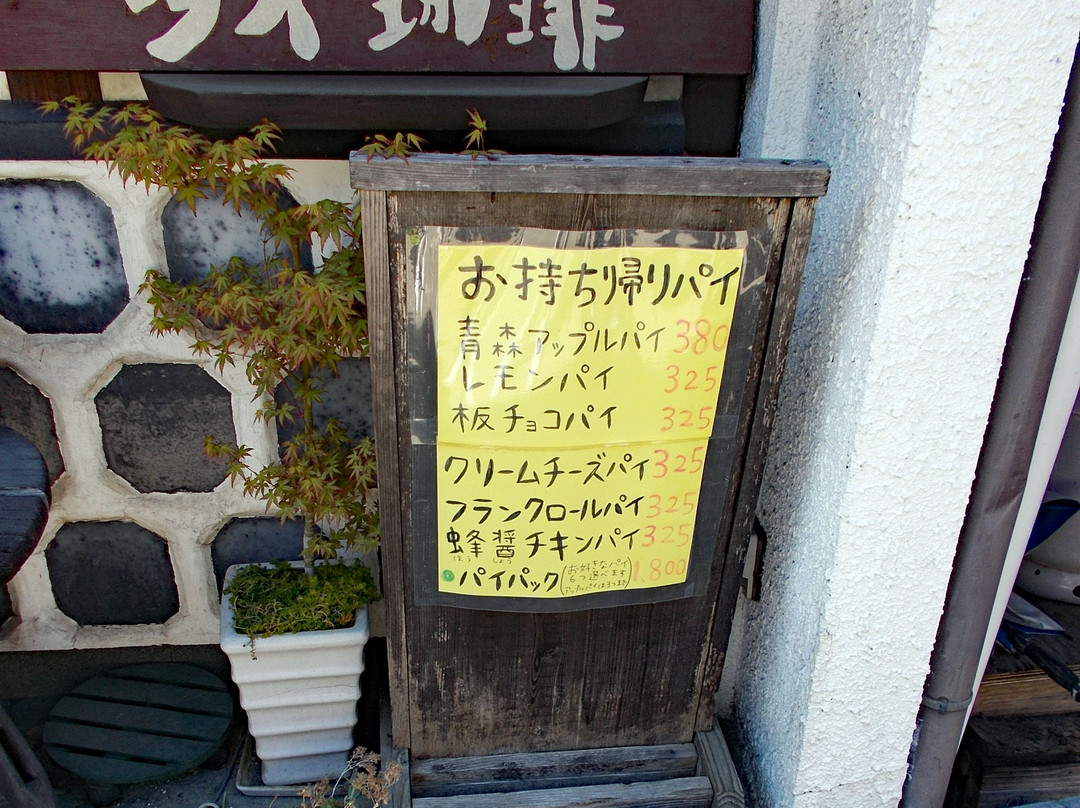 珈琲
お持ち帰りパイ
青森アップルパイ 380
レモンパイ 325
板チョコパイ 325
クリームチーズパイ 325
フランクロールパイ 325
蜂醤チキンパイ 325
ほう しょう
パイパック 1,800
お好きなパイ
6つ選べます
アップルパイは3つまで